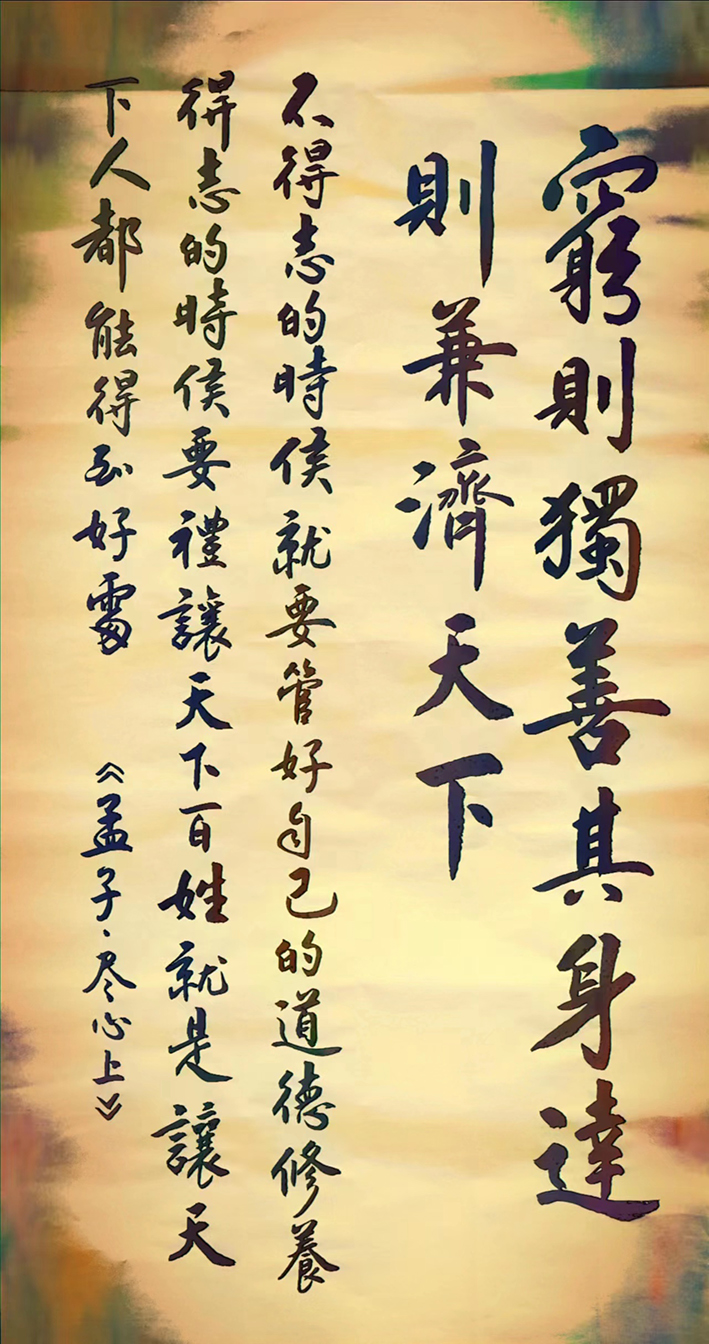 窮則獨善其身達
則兼濟天下
不得志的時侯就要管好自己的道德修養
得志的時侯要禮讓天下百姓就是讓天
下人都能得到好 《孟子、尽心上》